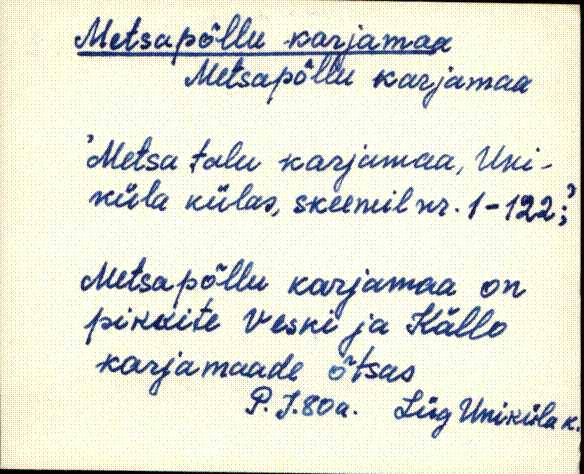 Metsapõllu karjamaa
Metsapõllu karjamaa
'Metsa talu karjamaa, Uni-
küla külas, skeemil nr. 1-122;'
Metsapõllu karjamaa on
pikkite Veski ja Källo
karjamaade õtsas
P. J. 80a. Lüg Uniküla k.